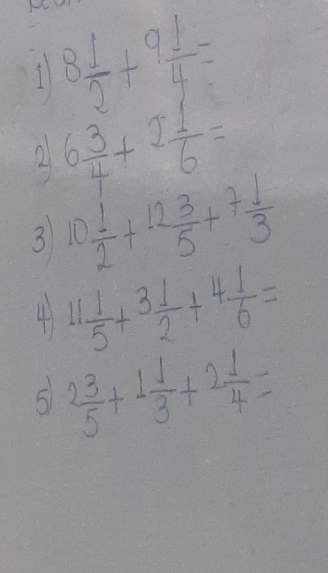 1) 8 1/2 + 9 1/4 =
2) 6 3/4 + 2 1/6 =
3) 10 1/2 + 12 3/5 + 7 1/3
4) 11 1/5 + 3 1/2 + 4 1/6 =
5) 2 3/5 + 1 1/3 + 2 1/4 =